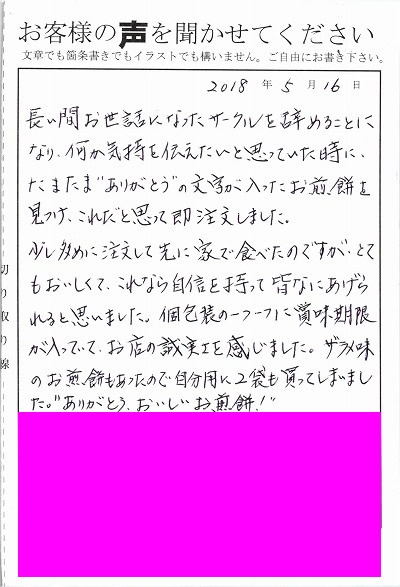 お客様の声を聞かせてください
文章でも箇条書きでもイラストでも構いません。ご自由にお書き下さい。
2018年5月16日
長い間お世話になったサークルを辞めることに
なり、何か気持を伝えたいと思っていた時に、
たまたま"ありがとう"の文字が入ったお煎餅を
見つけ、これだと思って即注文しました。
少し多めに注文して先に家で食べたのですが、とて
もおいしくて、これなら自信を持って皆なにあげら
れると思いました。個包装の一つ一つに賞味期限
が入っていて、お店の誠実さを感じました。ザラメ味
のお煎餅もあったので自分用に2袋も買ってしまいまし
た。"ありがとう、おいしいお煎餅!"
切り取り線